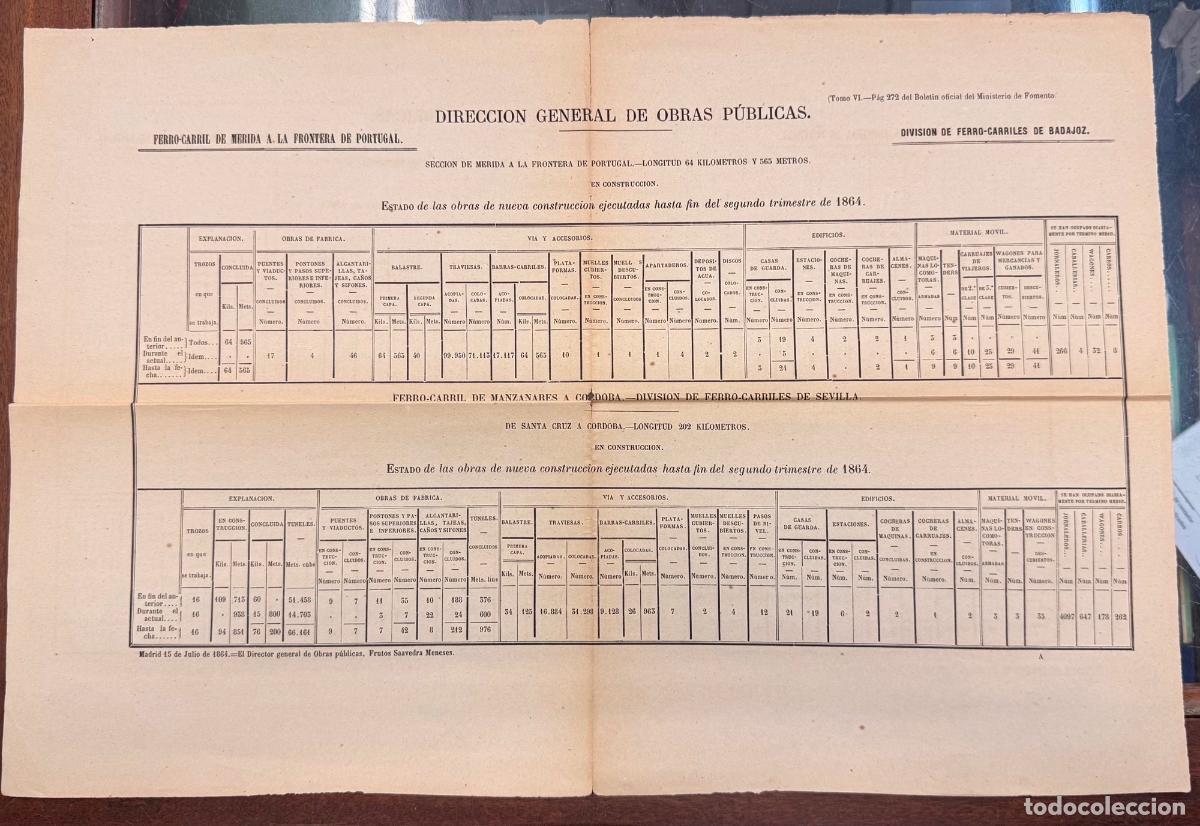 (Tomo VI.—Pág 272 del Boletin oficial del Ministerio de Fomento.
DIRECCION GENERAL DE OBRAS PÚBLICAS.
FERRO-CARRIL DE MERIDA A LA FRONTERA DE PORTUGAL.
DIVISION DE FERRO-CARRILES DE BADAJOZ.
SECCION DE MERIDA A LA FRONTERA DE PORTUGAL.—LONGITUD 64 KILOMETROS Y 565 METROS.
EN CONSTRUCCION.
ESTADO de las obras de nueva construccion ejecutadas hasta fin del segundo trimestre de 1864.
EXPLANACION. OBRAS DE FABRICA. VIA Y ACCESORIOS. EDIFICIOS. MATERIAL MOVIL. SE HAN OCUPADO DIARIAMENTE POR TERMINO MEDIO.
TROZOS en que se trabaja. CONCLUIDA Kils. Mets.
PUENTES Y VIADUCTOS. CONCLUIDOS Número.
PONTONES Y PASOS SUPERIORES E INFERIORES. CONCLUIDOS. Número.
ALCANTARILLAS, TAJEAS, CAÑOS Y SIFONES. CONCLUIDOS. Número.
BALASTRE. PRIMERA CAPA. Kils. Mets. SEGUNDA CAPA. Kils. Mets.
TRAVIESAS. ACOPIADAS. Número COLOCADAS. Número.
BARRAS-CARRILES. ACOPIADAS. Número COLOCADAS. Kils. Mets.
PLATAFORMAS. COLOCADAS. Número.
MUELLES CUBIERTOS. EN CONSTRUCCION. Número.
MUELLES DESCUBIERTOS. CONCLUIDOS Número
APARTADEROS. EN CONSTRUCCION. Número CONCLUIDOS. Número
DEPOSITOS DE AGUA. COLOCADOS. Número
DISCOS COLOCADOS. Núm.
CASAS DE GUARDA. EN CONSTRUCCION. Núm. CONCLUIDAS. Núm.
ESTACIONES. EN CONSTRUCCION. Número
COCHERAS DE MAQUINAS. EN CONSTRUCCION. Número
COCHERAS DE CARRUAJES. EN CONSTRUCCION. Número
ALMACENES. CONCLUIDOS. Núm.
MAQUINAS LOCOMOTORAS. ARMADAS Número
TENDERS. Núm
CARRUAJES DE VIAJEROS. DE 2.ª CLASE Núm DE 3.ª CLASE Núm
WAGONES PARA MERCANCIAS Y GANADOS. CUBIERTOS. Núm DESCUBIERTOS. Núm
JORNALEROS. Núm CABALLERIAS. Núm WAGONES Núm CARROS Núm
En fin del anterior Todos.. 64 565 3 19 4 2 2 1 3 3
Durante el actual Idem.... 17 4 46 64 565 40 99.950 71.413 17.117 64 565 10 1 1 1 4 2 2 5 6 6 10 25 29 41 266 4 32 8
Hasta la fecha Idem.... 64 565 3 24 4 2 1 9 9 10 25 29 41
FERRO-CARRIL DE MANZANARES A CORDOBA.—DIVISION DE FERRO-CARRILES DE SEVILLA.
DE SANTA CRUZ A CORDOBA.—LONGITUD 202 KILOMETROS.
EN CONSTRUCCION.
ESTADO de las obras de nueva construccion ejecutadas hasta fin del segundo trimestre de 1864.
EXPLANACION. OBRAS DE FABRICA. VIA Y ACCESORIOS. EDIFICIOS. MATERIAL MOVIL. SE HAN OCUPADO DIARIAMENTE POR TERMINO MEDIO.
TROZOS en que se trabaja. EN CONSTRUCCION. Kils. Mets. CONCLUIDA Kils. Mets. TUNELES. Mets. cubs
PUENTES Y VIADUCTOS. EN CONSTRUCCION. Número CONCLUIDOS. Número
PONTONES Y PASOS SUPERIORES E INFERIORES. EN CONSTRUCCION. Número CONCLUIDOS. Número
ALCANTARILLAS, TAJEAS, CAÑOS Y SIFONES EN CONSTRUCCION. Número CONCLUIDOS. Número
TUNELES. CONCLUIDOS Mets. lins
BALASTRE. PRIMERA CAPA. Kils. Mets.
TRAVIESAS. ACOPIADAS. Número. COLOCADAS. Número.
BARRAS-CARRILES. ACOPIADAS Número. COLOCADAS. Kils Mets.
PLATAFORMAS. COLOCADAS. Número.
MUELLES CUBIERTOS. CONCLUIDOS Número.
MUELLES DESCUBIERTOS. EN CONSTRUCCION. Número.
PASOS DE NIVEL. EN CONSTRUCCION. Número.
CASAS DE GUARDA. EN CONSTRUCCION. Núm. CONCLUIDAS. Núm.
ESTACIONES. EN CONSTRUCCION. Número.
COCHERAS DE MAQUINAS. CONCLUIDAS. Número.
COCHERAS DE CARRUAJES. EN CONSTRUCCION. Número.
ALMACENES. CONCLUIDOS. Núm.
MAQUINAS LOCOMOTORAS. ARMADAS Núm.
TENDERS. Núm.
WAGONES EN CONSTRUCCION DESCUBIERTOS. Núm.
JORNALEROS. Núm CABALLERIAS. Núm WAGONES Núm CARROS. Núm
En fin del anterior 16 109 713 60 51.458 9 7 11 35 10 188 376
Durante el actual 16 938 15 800 14.703 3 7 22 24 600 34 125 16.884 31.298 9.128 26 963 7 2 4 12 21 19 6 2 2 1 2 3 3 35 4097 647 178 262
Hasta la fecha 16 94 851 76 200 66.161 9 7 7 42 8 212 976
Madrid 15 de Julio de 1864.=El Director general de Obras públicas, Frutos Saavedra Meneses.
A
todocoleccion